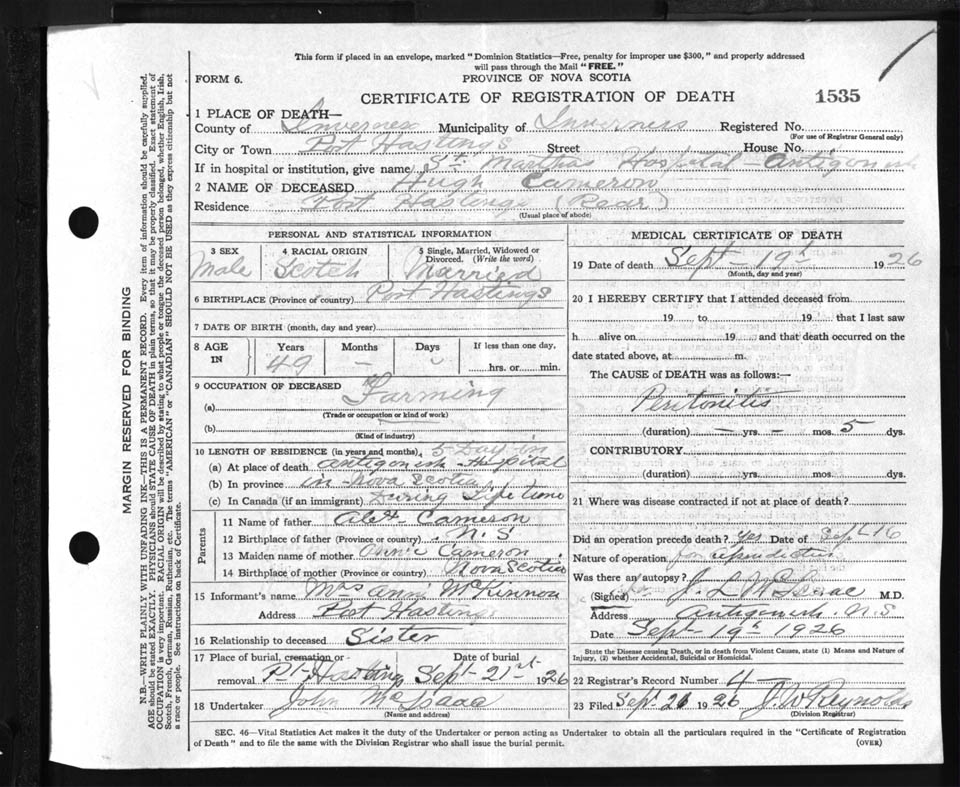 This form if placed in an envelope, marked "Dominion Statistics—Free, penalty for improper use $300," and properly addressed
will pass through the Mail "FREE."
FORM 6.
PROVINCE OF NOVA SCOTIA
CERTIFICATE OF REGISTRATION OF DEATH
1535
1 PLACE OF DEATH—
County of Inverness Municipality of Inverness Registered No.
(For use of Registrar General only)
City or Town Port Hastings Street House No.
If in hospital or institution, give name St. Marthas Hospital - Antigonish
2 NAME OF DECEASED Hugh Cameron
Residence Port Hastings (Rear)
(Usual place of abode)
PERSONAL AND STATISTICAL INFORMATION
3 SEX Male
4 RACIAL ORIGIN Scotch
5 Single, Married, Widowed or Divorced. (Write the word) Married
6 BIRTHPLACE (Province or country) Port Hastings
7 DATE OF BIRTH (month, day and year)
8 AGE IN Years 49 Months – Days
If less than one day, hrs. or min.
9 OCCUPATION OF DECEASED
(a) Farming
(Trade or occupation or kind of work)
(b)
(Kind of industry)
10 LENGTH OF RESIDENCE (in years and months). 5 Days in
(a) At place of death Antigonish Hospital
(b) In province in Nova Scotia
(c) In Canada (if an immigrant) During Life time
Parents
11 Name of father Cameron
12 Birthplace of father (Province or country) N.S
13 Maiden name of mother Annie Cameron
14 Birthplace of mother (Province or country) Nova Scotia
15 Informant's name Mrs Ann McKinnon
Address Port Hastings
16 Relationship to deceased Sister
17 Place of burial, cremation or removal Pt Hasting
Date of burial Sept 21st 1926
18 Undertaker John McIsaac
(Name and address)
MEDICAL CERTIFICATE OF DEATH
19 Date of death Sept - 19th 1926
(Month, day and year)
20 I HEREBY CERTIFY that I attended deceased from
19 to 19 that I last saw
h alive on 19 and that death occurred on the
date stated above, at m.
The CAUSE OF DEATH was as follows:—
Peritonitis
(duration) – yrs. – mos. 5 dys.
CONTRIBUTORY
(duration) yrs. mos. dys.
21 Where was disease contracted if not at place of death?
Did an operation precede death? yes Date of Sept 16
Nature of operation for appendicitis
Was there an autopsy?
(Signed) for J. L. McIsaac M.D.
Address Antigonish. N.S
Date Sept 19th 1926
State the Disease causing Death, or in death from Violent Causes, state (1) Means and Nature of
Injury, (2) whether Accidental, Suicidal or Homicidal.
22 Registrar's Record Number 4
23 Filed Sept 26 1926 J. W Reynolds
(Division Registrar)
SEC. 46—Vital Statistics Act makes it the duty of the Undertaker or person acting as Undertaker to obtain all the particulars required in the "Certificate of Registration
of Death" and to file the same with the Division Registrar who shall issue the burial permit.
(OVER)
MARGIN RESERVED FOR BINDING
N.B.—WRITE PLAINLY WITH UNFADING INK—THIS IS A PERMANENT RECORD. Every item of information should be carefully supplied.
AGE should be stated EXACTLY. PHYSICIANS should STATE CAUSE OF DEATH in plain terms, so that it may be properly classified. Exact statement of
OCCUPATION is very important. RACIAL ORIGIN will be described by stating to what people or tongue the deceased person belonged, whether English, Irish,
Scotch, French, German, Russian, Ruthenian, etc. The terms "AMERICAN" or "CANADIAN" SHOULD NOT BE USED as they express citizenship but not
a race or people. See instructions on back of Certificate.